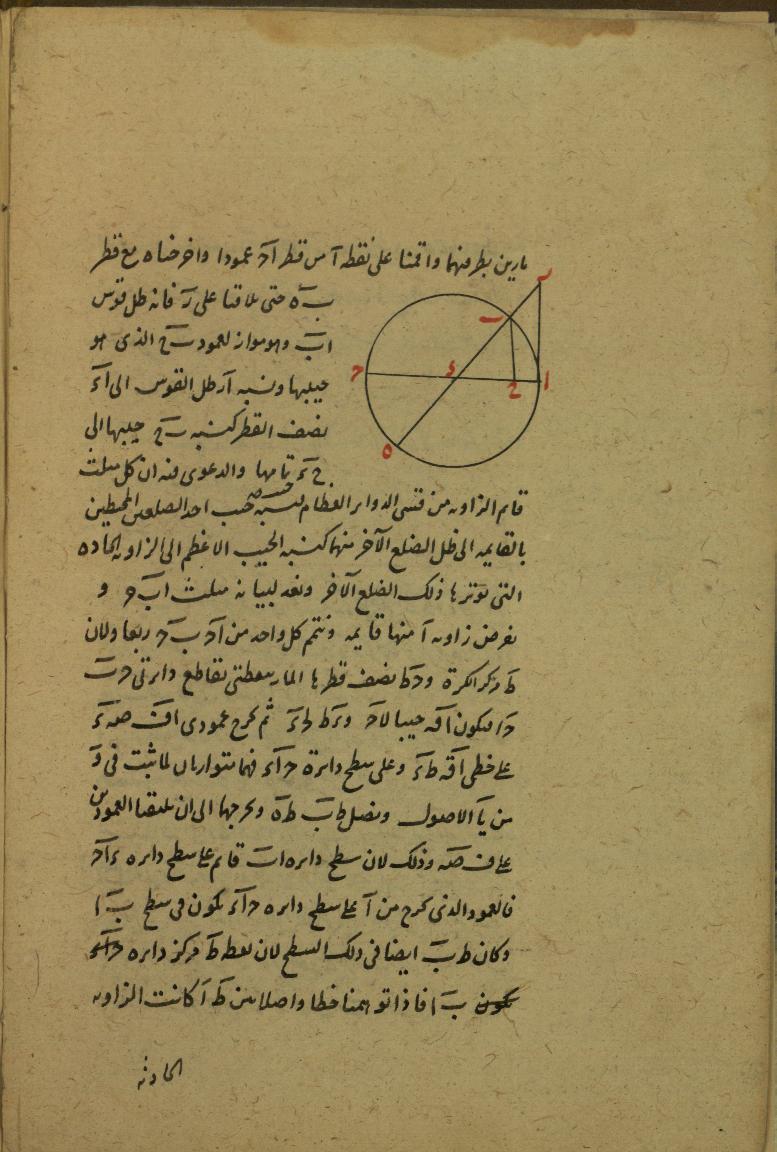 مارين بطرفيها واقمنا على نقطه آ من قطر آحـ عمودا واخرجناه مع قطر
بـ ه حتى تلاقيا على ر فانه ظل قوس
اب وهو مواز لعمود بـ ح الذى هو
جيبها ونسبه آر ظل القوس الى آء
نصف القطر كنسبه بـ ح جيبها الى
ح ء تمامها والدعوى فيه ان كل مثلث
قايم الزاويه من قسى الدواير العظام فنسبة جيب احد الضلعين المحيطين
بالقايمه الى ظل الضلع الآخر منها كنسبه الجيب الاعظم الى الزاويه الحاده
التى يوترها ذلك الضلع الآخر ونعد لبيانه مثلث اب حـ و
نفرض زاويه آ منها قايمه ونتمم كل واحد من آحـ بـ حـ ربعا ولان
ط مركز الكرة وحـ ط نصف قطرها المار بنقطتى تقاطع دايرتى حـ بـ
حـ ا فيكون اقـ جيبا لاحـ ثم نخرج عمودى
على خطى اقـ ط ء وعلى سطح دايرة حـ اء فهما متوازيان لما ثبت فى و
من يآ الاصول ونصل ط بـ ط ه ونخرجها الى ان تلتقيا العمودين
على ف صـ وذلك لان سطح دايره اب قايم على سطح دايره ء احـ
فالعمود الذى يخرج من آ على سطح دايره حـ اء يكون فى سطح بـ ا
وكان ط بـ ايضا فى ذلك السطح لان نقطه ط مركز دايره حـ اء
بـ ا فاذا توهمنا خطا واصلا بين ط آ كانت الزاويه
الحادثه
ر
بـ
حـ
ء
ح
ا
ه